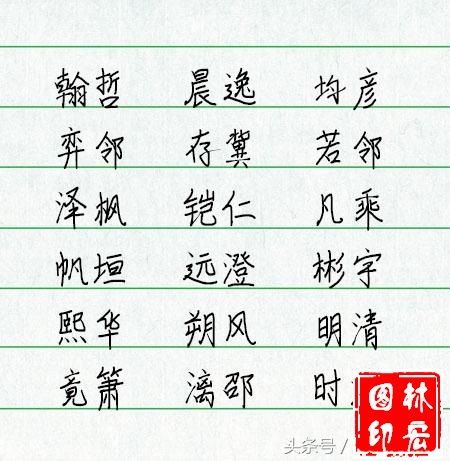 翰哲 晨逸 均彦
弈邻 存冀 若邻
泽枫 铠仁 凡乘
帆垣 远澄 彬宇
熙华 朔风 明清
竟箫 漓邵 时
头条号